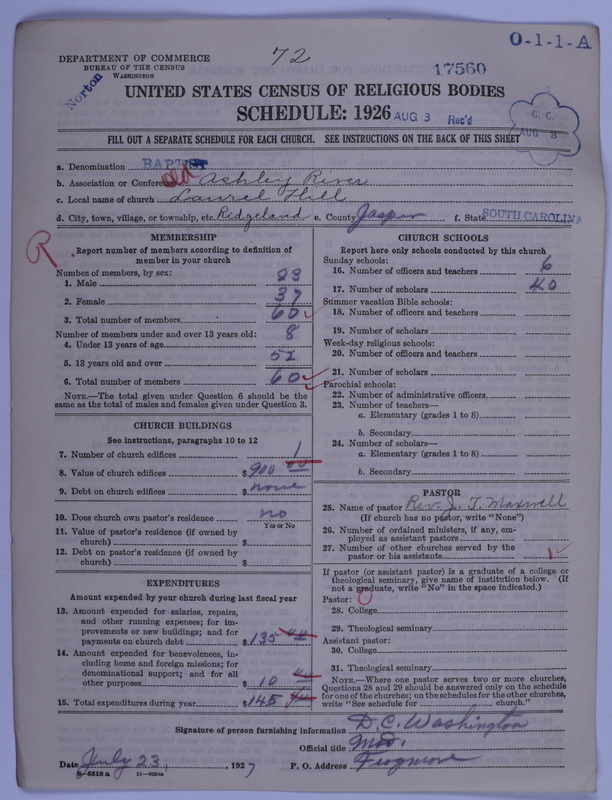 O-1-1-A
72
DEPARTMENT OF COMMERCE
BUREAU OF THE CENSUS
WASHINGTON
17560
Norton
UNITED STATES CENSUS OF RELIGIOUS BODIES
SCHEDULE: 1926
AUG 3 Rec'd
C. C.
AUG 8
FILL OUT A SEPARATE SCHEDULE FOR EACH CHURCH. SEE INSTRUCTIONS ON THE BACK OF THIS SHEET
a. Denomination BAPTIST
b. Association or Conference Old Ashley River
c. Local name of church Laurel Hill
d. City, town, village, or township, etc. Ridgeland e. County Jasper f. State SOUTH CAROLINA
R
MEMBERSHIP
Report number of members according to definition of
member in your church
Number of members, by sex:
1. Male 23
2. Female 37
3. Total number of members 60
Number of members under and over 13 years old:
4. Under 13 years of age 8
5. 13 years old and over 52
6. Total number of members 60
NOTE.—The total given under Question 6 should be
same as the total of males and females given under Question 3.
CHURCH BUILDINGS
See instructions, paragraphs 10 to 12
7. Number of church edifices 1
8. Value of church edifices $ 900 00
9. Debt on church edifices $ none
10. Does church own pastor's residence no
Yes or No
11. Value of pastor's residence (if owned by
church) $
12. Debt on pastor's residence (if owned by
church) $
EXPENDITURES
Amount expended by your church during last fiscal year
13. Amount expended for salaries, repairs,
and other running expenses; for im-
provements or new buildings; and for
payments on church debt $ 135
14. Amount expended for benevolences, in-
cluding home and foreign missions; for
denominational support; and for all
other purposes $ 10
15. Total expenditures during year $ 145
CHURCH SCHOOLS
Report here only schools conducted by this church
Sunday schools:
16. Number of officers and teachers 6
17. Number of scholars 40
Summer vacation Bible schools:
18. Number of officers and teachers
19. Number of scholars
Week-day religious schools:
20. Number of officers and teachers
21. Number of scholars
Parochial schools:
22. Number of administrative officers
23. Number of teachers—
a. Elementary (grades 1 to 8)
b. Secondary
24. Number of scholars—
a. Elementary (grades 1 to 8)
b. Secondary
PASTOR
25. Name of pastor Rev. J. T. Maxwell
(If church has no pastor, write "None")
26. Number of ordained ministers, if any, em-
ployed as assistant pastors
27. Number of other churches served by the
pastor or his assistants 1
If pastor (or assistant pastor) is a graduate of a college or
theological seminary, give name of institution below. (If
not a graduate, write "No" in the space indicated.)
Pastor: 0
28. College
29. Theological seminary
Assistant pastor:
30. College
31. Theological seminary
NOTE.—Where one pastor serves two or more churches,
Questions 28 and 29 should be answered only on the schedule
for one of the churches; on the schedules for the other churches,
write "See schedule for church."
Signature of person furnishing information D. C. Washington
Official title Mod.
Date July 23, 1927 P. O. Address Frogmore
8-5518a 11-9084a